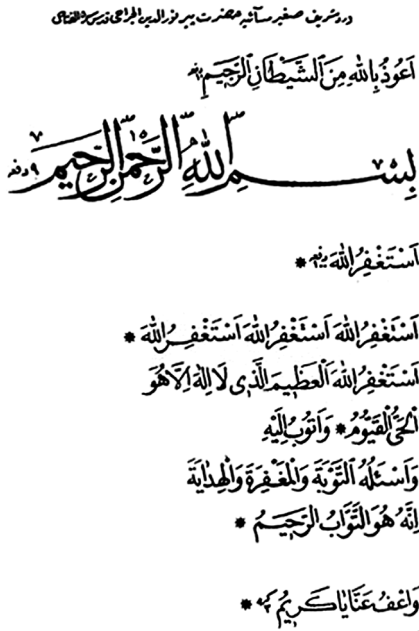 ورد شريف صغير مسائيه حضرت پير نور الدين الجراحى قدس سره الفتاحى
اَعُوذُ بِاللهِ مِنَ الشَّيْطَانِ الرَّجِيمِ
بِسْمِ اللهِ الرَّحْمٰنِ الرَّحِيمِ ٩ دفعه
اَسْتَغْفِرُ اللهَ *
اَسْتَغْفِرُ اللهَ اَسْتَغْفِرُ اللهَ اَسْتَغْفِرُ اللهَ *
اَسْتَغْفِرُ اللهَ الْعَظِيمَ الَّذِى لَا اِلٰهَ اِلَّا هُوَ
الْحَىُّ الْقَيُّومُ * وَاَتُوبُ اِلَيْهِ
وَاَسْئَلُهُ التَّوْبَةَ وَالْمَغْفِرَةَ وَالْهِدَايَةَ
اِنَّهُ هُوَ التَّوَّابُ الرَّحِيمُ *
وَاعْفُ عَنَّا يَا كَرِيمُ *